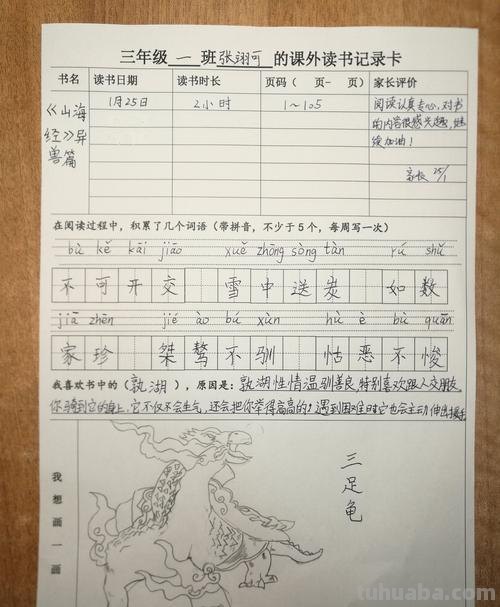 三年级 一 班 张翊可 的课外读书记录卡
书名 读书日期 读书时长 页码（ 页- 页） 家长评价
《山海经》异兽篇 1月25日 2小时 1～105 阅读认真专心,对书的内容很感兴趣,继续加油!
家长 25/1
在阅读过程中，积累了几个词语（带拼音，不少于5个，每周写一次）
bù kě kāi jiāo xuě zhōng sòng tàn rú shǔ
不可开交 雪中送炭 如数
jiā zhēn jié ào bú xùn hù è bù quān
家珍 桀骜不驯 怙恶不悛
我喜欢书中的（孰湖），原因是：孰湖性情温驯善良,特别喜欢跟人交朋友,
你骑到它的身上,它不仅不会生气,还会把你举得高高的!遇到困难时它也会主动伸出援手
我想画一画
三足龟
tuhuaba.com